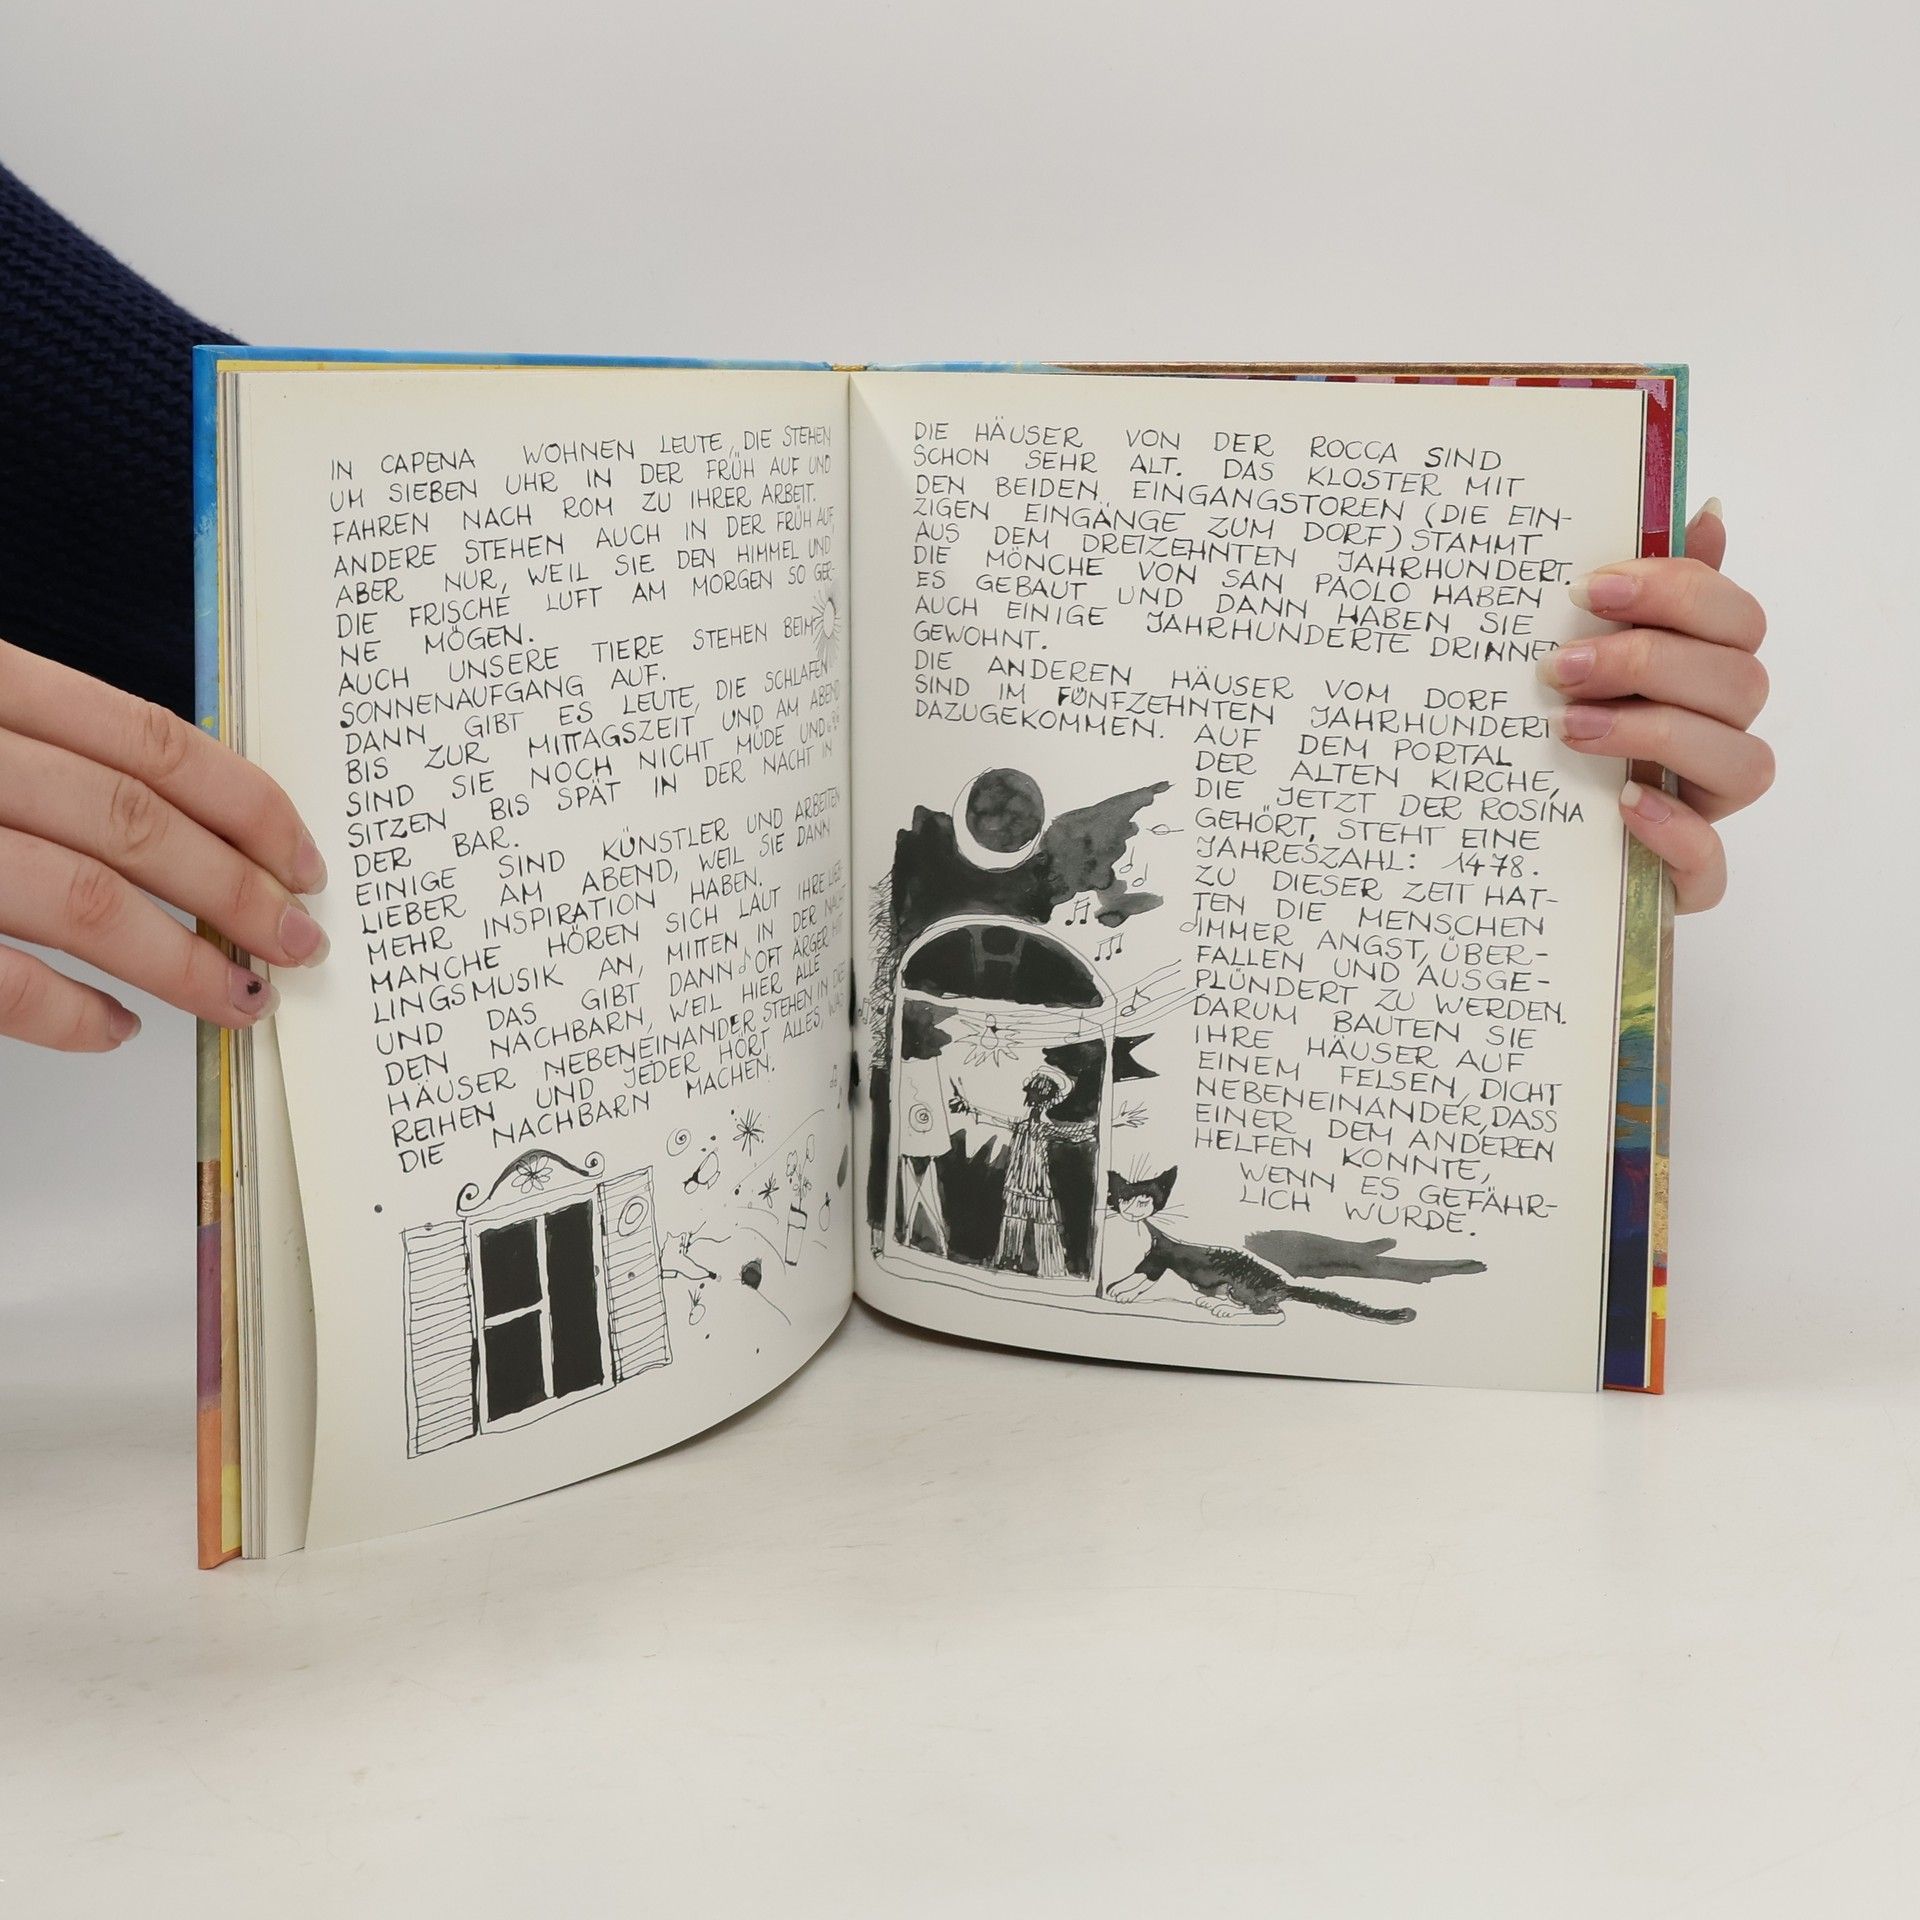 IN CAPENA WOHNEN LEUTE, DIE STEHEN
UM SIEBEN UHR IN DER FRÜH AUF UND
FAHREN NACH ROM ZU IHRER ARBEIT.
ANDERE STEHEN AUCH IN DER FRÜH AUF,
ABER NUR, WEIL SIE DEN HIMMEL UND
DIE FRISCHE LUFT AM MORGEN SO GER-
NE MÖGEN.
AUCH UNSERE TIERE STEHEN BEIM
SONNENAUFGANG AUF.
DANN GIBT ES LEUTE, DIE SCHLAFEN
BIS ZUR MITTAGSZEIT UND AM ABEND
SIND SIE NOCH NICHT MÜDE UND
SITZEN BIS SPÄT IN DER NACHT IN
DER BAR.
EINIGE SIND KÜNSTLER UND ARBEITEN
LIEBER AM ABEND, WEIL SIE DANN
MEHR INSPIRATION HABEN.
MANCHE HÖREN SICH LAUT IHRE LIEB-
LINGSMUSIK AN, MITTEN IN DER NACHT
UND DAS GIBT DANN OFT ÄRGER MIT
DEN NACHBARN, WEIL HIER ALLE
HÄUSER NEBENEINANDER STEHEN IN
REIHEN UND JEDER HÖRT ALLES, WAS
DIE NACHBARN MACHEN.
DIE HÄUSER VON DER ROCCA SIND
SCHON SEHR ALT. DAS KLOSTER MIT
DEN BEIDEN EINGANGSTOREN (DIE EIN-
ZIGEN EINGÄNGE ZUM DORF) STAMMT
AUS DEM DREIZEHNTEN JAHRHUNDERT.
DIE MÖNCHE VON SAN PAOLO HABEN
ES GEBAUT UND DANN HABEN SIE
AUCH EINIGE JAHRHUNDERTE DRINNEN
GEWOHNT.
DIE ANDEREN HÄUSER VOM DORF
SIND IM FÜNFZEHNTEN JAHRHUNDERT
DAZUGEKOMMEN. AUF DEM PORTAL
DER ALTEN KIRCHE,
DIE JETZT DER ROSINA
GEHÖRT, STEHT EINE
JAHRESZAHL: 1478.
ZU DIESER ZEIT HAT-
TEN DIE MENSCHEN
IMMER ANGST, ÜBER-
FALLEN UND AUSGE-
PLÜNDERT ZU WERDEN.
DARUM BAUTEN SIE
IHRE HÄUSER AUF
EINEM FELSEN, DICHT
NEBENEINANDER, DASS
EINER DEM ANDEREN
HELFEN KONNTE,
WENN ES GEFÄHR-
LICH WURDE.